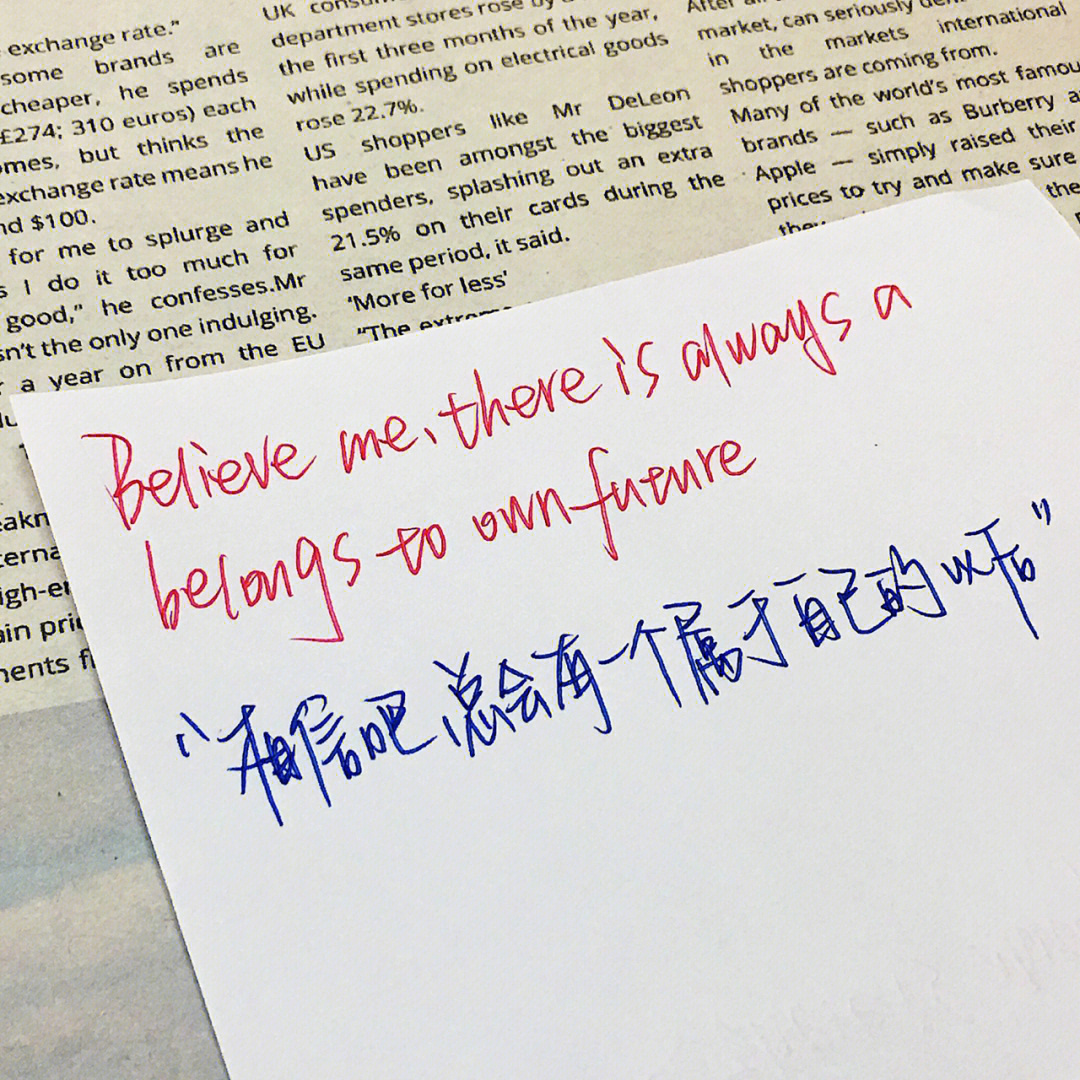 exchange rate."
some brands are
cheaper, he spends
£274; 310 euros) each
omes, but thinks the
exchange rate means he
nd $100.
for me to splurge and
s I do it too much for
good," he confesses.Mr
sn't the only one indulging.
r a year on from the EU
UK
department stores rose by
the first three months of the year,
while spending on electrical goods
rose 22.7%.
US shoppers like Mr DeLeon
have been amongst the biggest
spenders, splashing out an extra
21.5% on their cards during the
same period, it said.
'More for less'
"The
After
market, can seriously
in the markets international
shoppers are coming from.
Many of the world's most famou
brands — such as Burberry a
Apple — simply raised their
prices to try and make sure
the
Believe me, there is always a
belongs to own future
"相信吧 总会有一个属于自己的以后"
eakn
terna
igh-e
ain pri
ments f